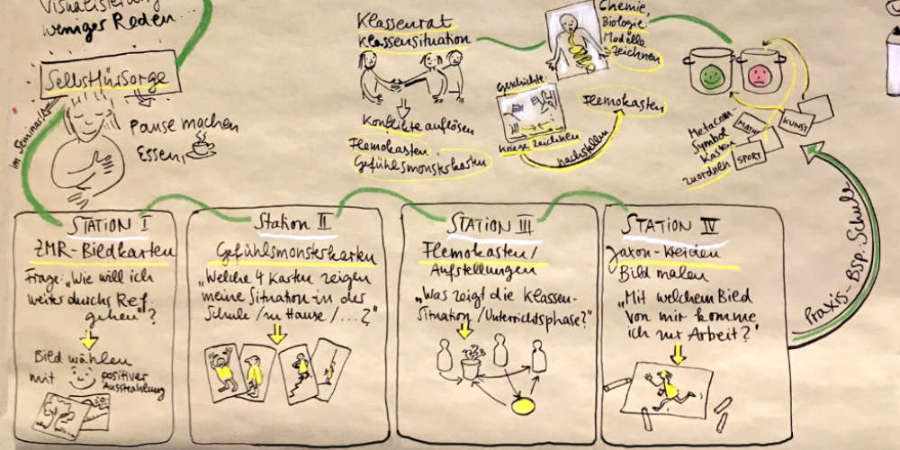 Visualisierung
weniger Reden...
Selbstfürsorge
Pause machen
Essen,
Klassenrat
Klassensituation
Konflikte auflösen
Flemokasten
Gefühlsmonsterkarten
Chemie,
Biologie,
Modelle
zeichnen
Geschichte
Kriege zeichnen
nachstellen
Flemokasten
Metacom
Symbol
Karten
zuordnen
MATHE
KUNST
SPORT
Praxis-Bsp. Schule
STATION I
ZMR-Bildkarten
Frage: „Wie will ich
weiter durchs Ref.
gehen"?
Bild wählen
mit positiver
Ausstrahlung
Station II
Gefühlsmonsterkarten
„Welche 4 Karten zeigen
meine Situation in der
Schule / zu Hause / ...?"
STATION III
Flemokasten/
Aufstellungen
„Was zeigt die Klassen-
situation / Unterrichtsphase?"
STATION IV
Jaxon-Kreiden
Bild malen
„Mit welchem Bild
von mir komme
ich zur Arbeit?"